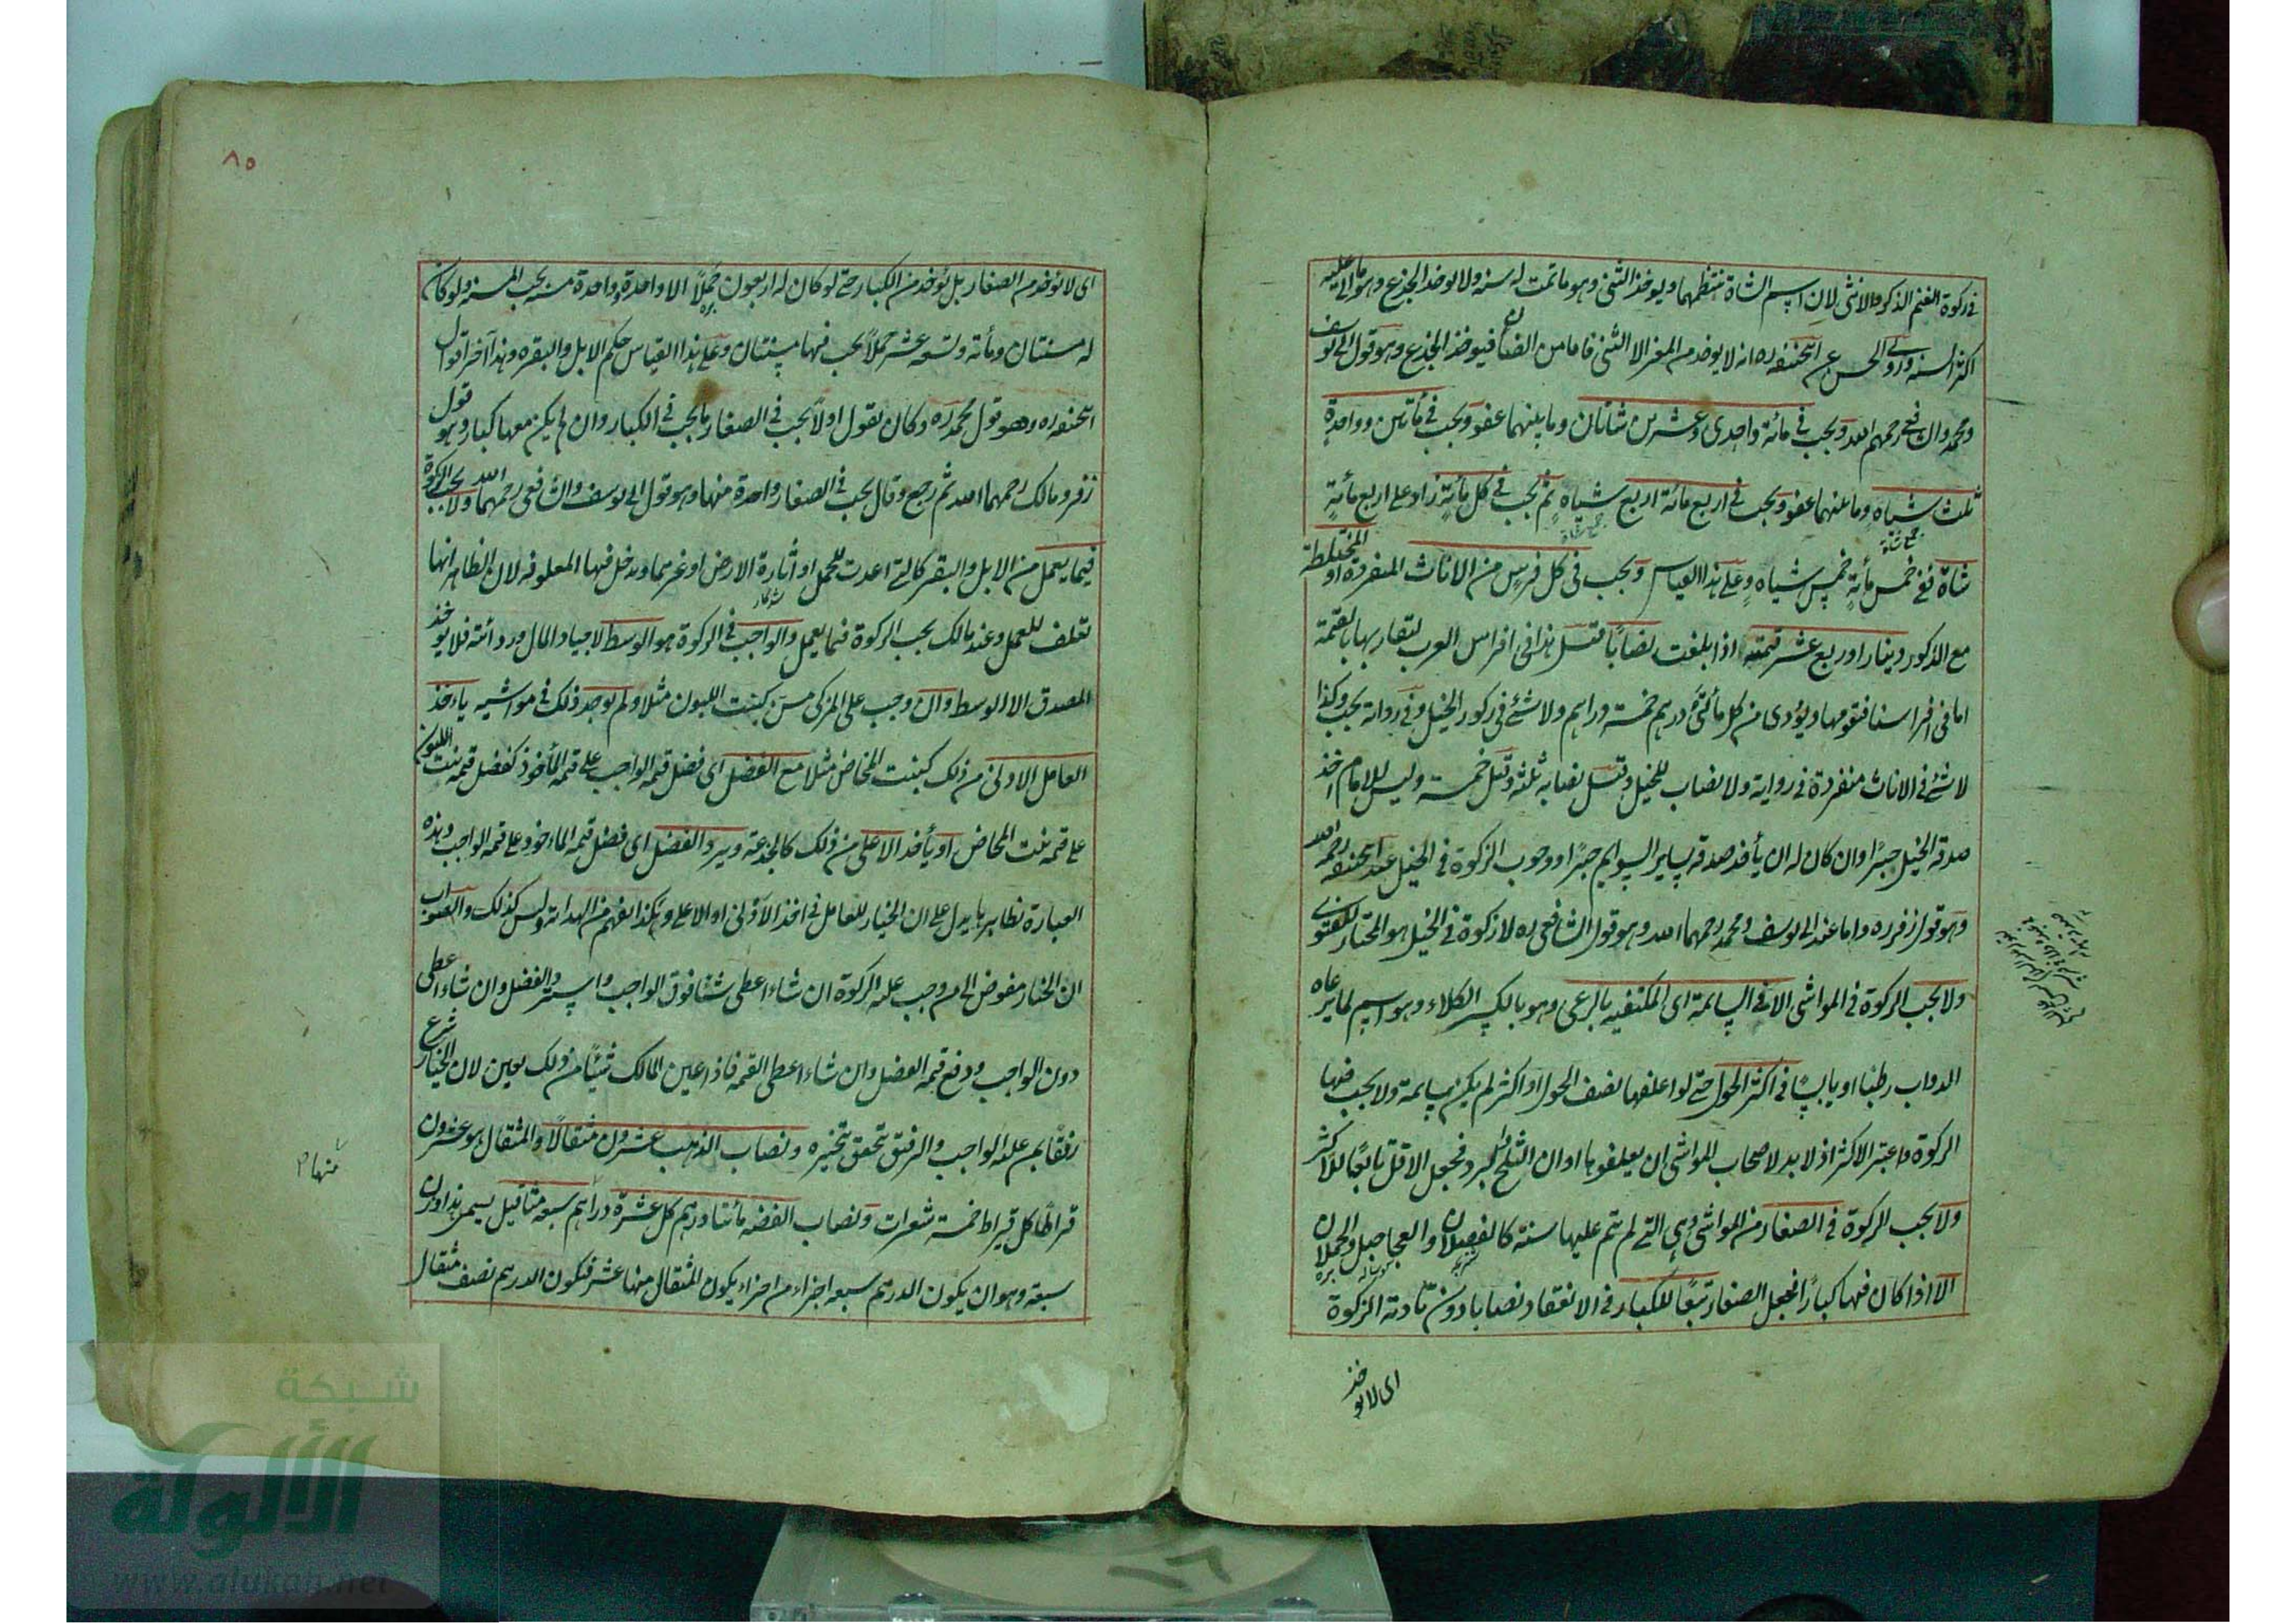 في زكوة الغنم الذكر والانثى لان اسم الشاة تنتظمهما ويوخذ الثني وهو ما تمت له سنة ولا يوخذ الجذع وهو ما اتى عليه
اكثر السنة وروى الحسن عن ابيحنيفه ره انه لا يوخذ من المعز الا الثني فاما من الضان فيوخذ الجذع وهو قول ابي يوسف
ومحمد والشافعي رحمهم الله ويجب في مائة واحدى وعشرين شاتان وما بينهما عفو ويجب في مأتين وواحدة
ثلث شياه وما بينهما عفو ويجب في اربع مائة اربع شياه ثم يجب في كل مائة زاد على اربع مائة
شاة ففي خمس مائة خمس شياه وعلى هذا القياس ويجب في كل فرس من الاناث المنفردة او المختلطة
مع الذكور دينار او ربع عشر قيمته اذا بلغت نصابا قيل هذا في افراس العرب لتقاربها بالقيمة
اما في افراسنا فتقومها ويؤدى من كل مأتي درهم خمسة دراهم ولا شئ في ذكور الخيل وفي رواية يجب وكذا
لا شئ في الاناث منفردة في رواية ولا نصاب للخيل وقيل نصابه ثلثة وقيل خمسة وليس للامام اخذ
صدقة الخيل جبرا وان كان له ان يأخذ صدقة ساير السوايم جبرا ووجوب الزكوة في الخيل عند ابيحنيفه رحمه الله
وهو قول زفر ره واما عند ابي يوسف ومحمد رحمهما الله وهو قول الشافعي ره لا زكوة في الخيل هو المختار للفتوى
ولا يجب الزكوة في المواشي الا في السايمة اى المكتفيه بالرعى وهو بالكسر الكلاء وهو اسم لما يرعاه
الدواب رطبا او يابسا في اكثر الحول حتى لو اعلفها نصف الحول او اكثر لم يكن سايمة ولا يجب فيها
الزكوة واعتبر الاكثر اذ لا بد لاصحاب المواشي ان يعلفوها اوان الثلج والبرد فجعل الاقل تابعا للاكثر
ولا يجب الزكوة في الصغار من المواشي وهي التي لم تتم عليها سنة كالفصلان والعجاجيل والحملان
الا اذا كان فيها كبارا فجعل الصغار تبعا للكبار في الانعقاد نصابا دون تأدية الزكوة
اى لا يوخذ
٨٥
اى لا يؤخذ من الصغار بل يؤخذ من الكبار حتى لو كان له اربعون حملا الا واحدة وواحدة مسنه يجب المسنه ولو كان
له مسنتان ومائة وتسعة عشر حملا يجب فيها مسنتان وعلى هذا القياس حكم الابل والبقره وهذا آخر اقوال
ابيحنيفه ره وهو قول محمد ره وكان يقول اولا يجب في الصغار ما يجب في الكبار وان لم يكن معها كبار وهو قول
زفر ومالك رحمهما الله ثم رجع وقال يجب في الصغار واحدة منها وهو قول ابي يوسف والشافعي رحمهما الله ولا يجب الزكوة
فيما يعمل من الابل والبقر كالتي اعدت للحمل او اثارة الارض او غيرهما ويدخل فيها المعلوفه لان الظاهر انها
تعلف للعمل وعند مالك يجب الزكوة فيما يعمل والواجب في الزكوة هو الوسط لا جياد المال وردائته فلا يوخذ
المصدق الا الوسط وان وجب على المزكى مسن كبنت اللبون مثلا ولم يوجد ذلك في مواشيه ياءخذ
العامل الادنى من ذلك كبنت المخاض مثلا مع الفضل اى فضل قيمة الواجب على قيمة المأخوذ كفضل قيمة بنت اللبون
على قيمة بنت المخاض او يأخذ الاعلى من ذلك كالجذعة ويرد الفضل اى فضل قيمة الماءخوذ على قيمة الواجب وهذه
العبارة بظاهرها يدل على ان الخيار للعامل في اخذ الادنى او الاعلى وهكذا يفهم من الهداية وليس كذلك والصواب
ان الخيار مفوض الى من وجب عليه الزكوة ان شاء اعطى شيئا فوق الواجب واسترد الفضل وان شاء اعطى
دون الواجب ودفع قيمة الفضل وان شاء اعطى القيمة فاذا عين المالك شيئا من ذلك يعين لان الخيار شرع
رفقا بمن عليه الواجب والرفق يتحقق بتخيره ونصاب الذهب عشرون مثقالا والمثقال هو عشرون
قيراطا كل قيراط خمسة شعرات ونصاب الفضه مأتا درهم كل عشرة دراهم سبعة مثاقيل يسمى هذا وزن
سبعة وهو ان يكون الدرهم سبعة اجزاء من اجزاء يكون المثقال منها عشر فيكون الدرهم نصف مثقال
منها
شبكة
الألوكة
www.alukah.net